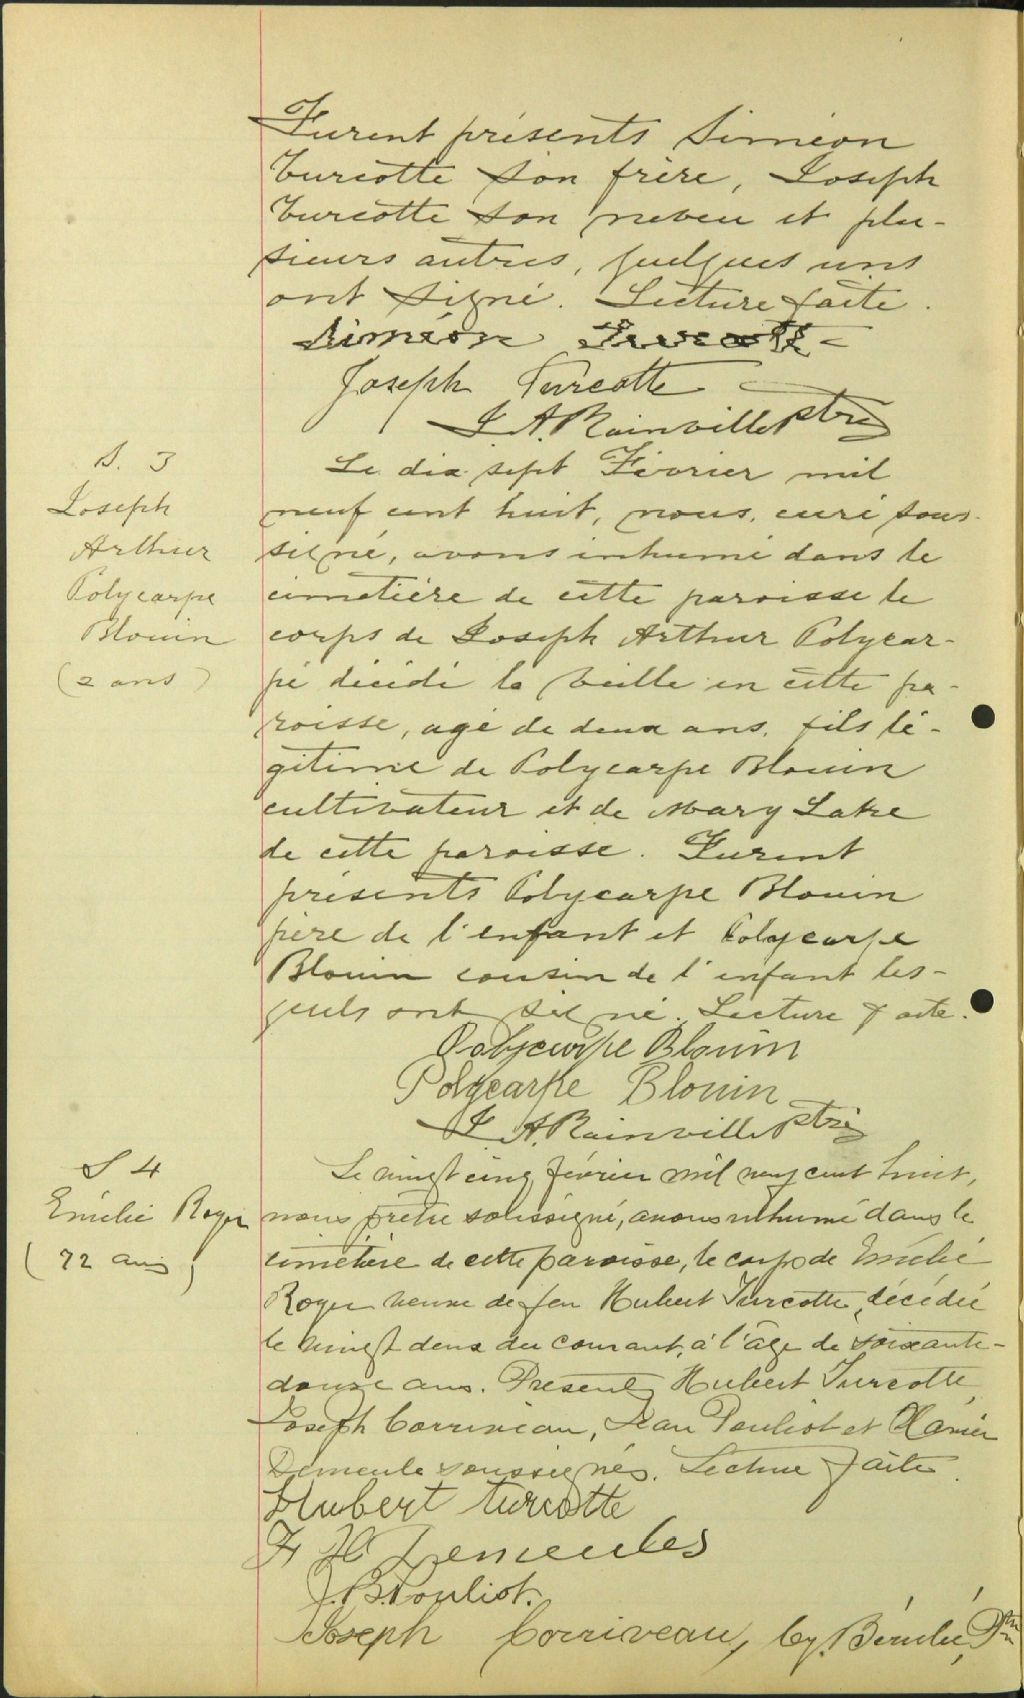 Furent présents Siméon
Turcotte son frère, Joseph
Turcotte son neveu et plu-
sieurs autres, quelques uns
ont signé. Lecture faite.
Siméon Turcotte
Joseph Turcotte
J A. Rainville Ptre
S. 3
Joseph
Arthur
Polycarpe
Blouin
(2 ans)
Le dix sept Février mil
neuf cent huit, nous, curé sous-
signé, avons inhumé dans le
cimetière de cette paroisse le
corps de Joseph Arthur Polycar-
pe décédé la veille en cette pa-
roisse, agé de deux ans, fils lé-
gitime de Polycarpe Blouin
cultivateur et de Mary Lake
de cette paroisse. Furent
présents Polycarpe Blouin
père de l'enfant et Polycarpe
Blouin cousin de l'enfant les-
quels ont signé. Lecture faite.
Polycarpe Blouin
Polycarpe Blouin
J A. Rainville Ptre
S 4
Emélie Roger
(72 ans)
Le vingt cinq février mil neuf cent huit,
nous prêtre soussigné, avons inhumé dans le
cimetière de cette paroisse, le corps de Emélie
Roger veuve de feu Hubert Turcotte, décédée
le vingt deux du courant, à l'âge de soixante-
douze ans. Présents Hubert Turcotte,
Joseph Corriveau, Jean Pouliot et Xavier
Demeule soussignés. Lecture faite.
Hubert Turcotte
F X Demeules
J. B. Pouliot.
Joseph Corriveau, Ptre